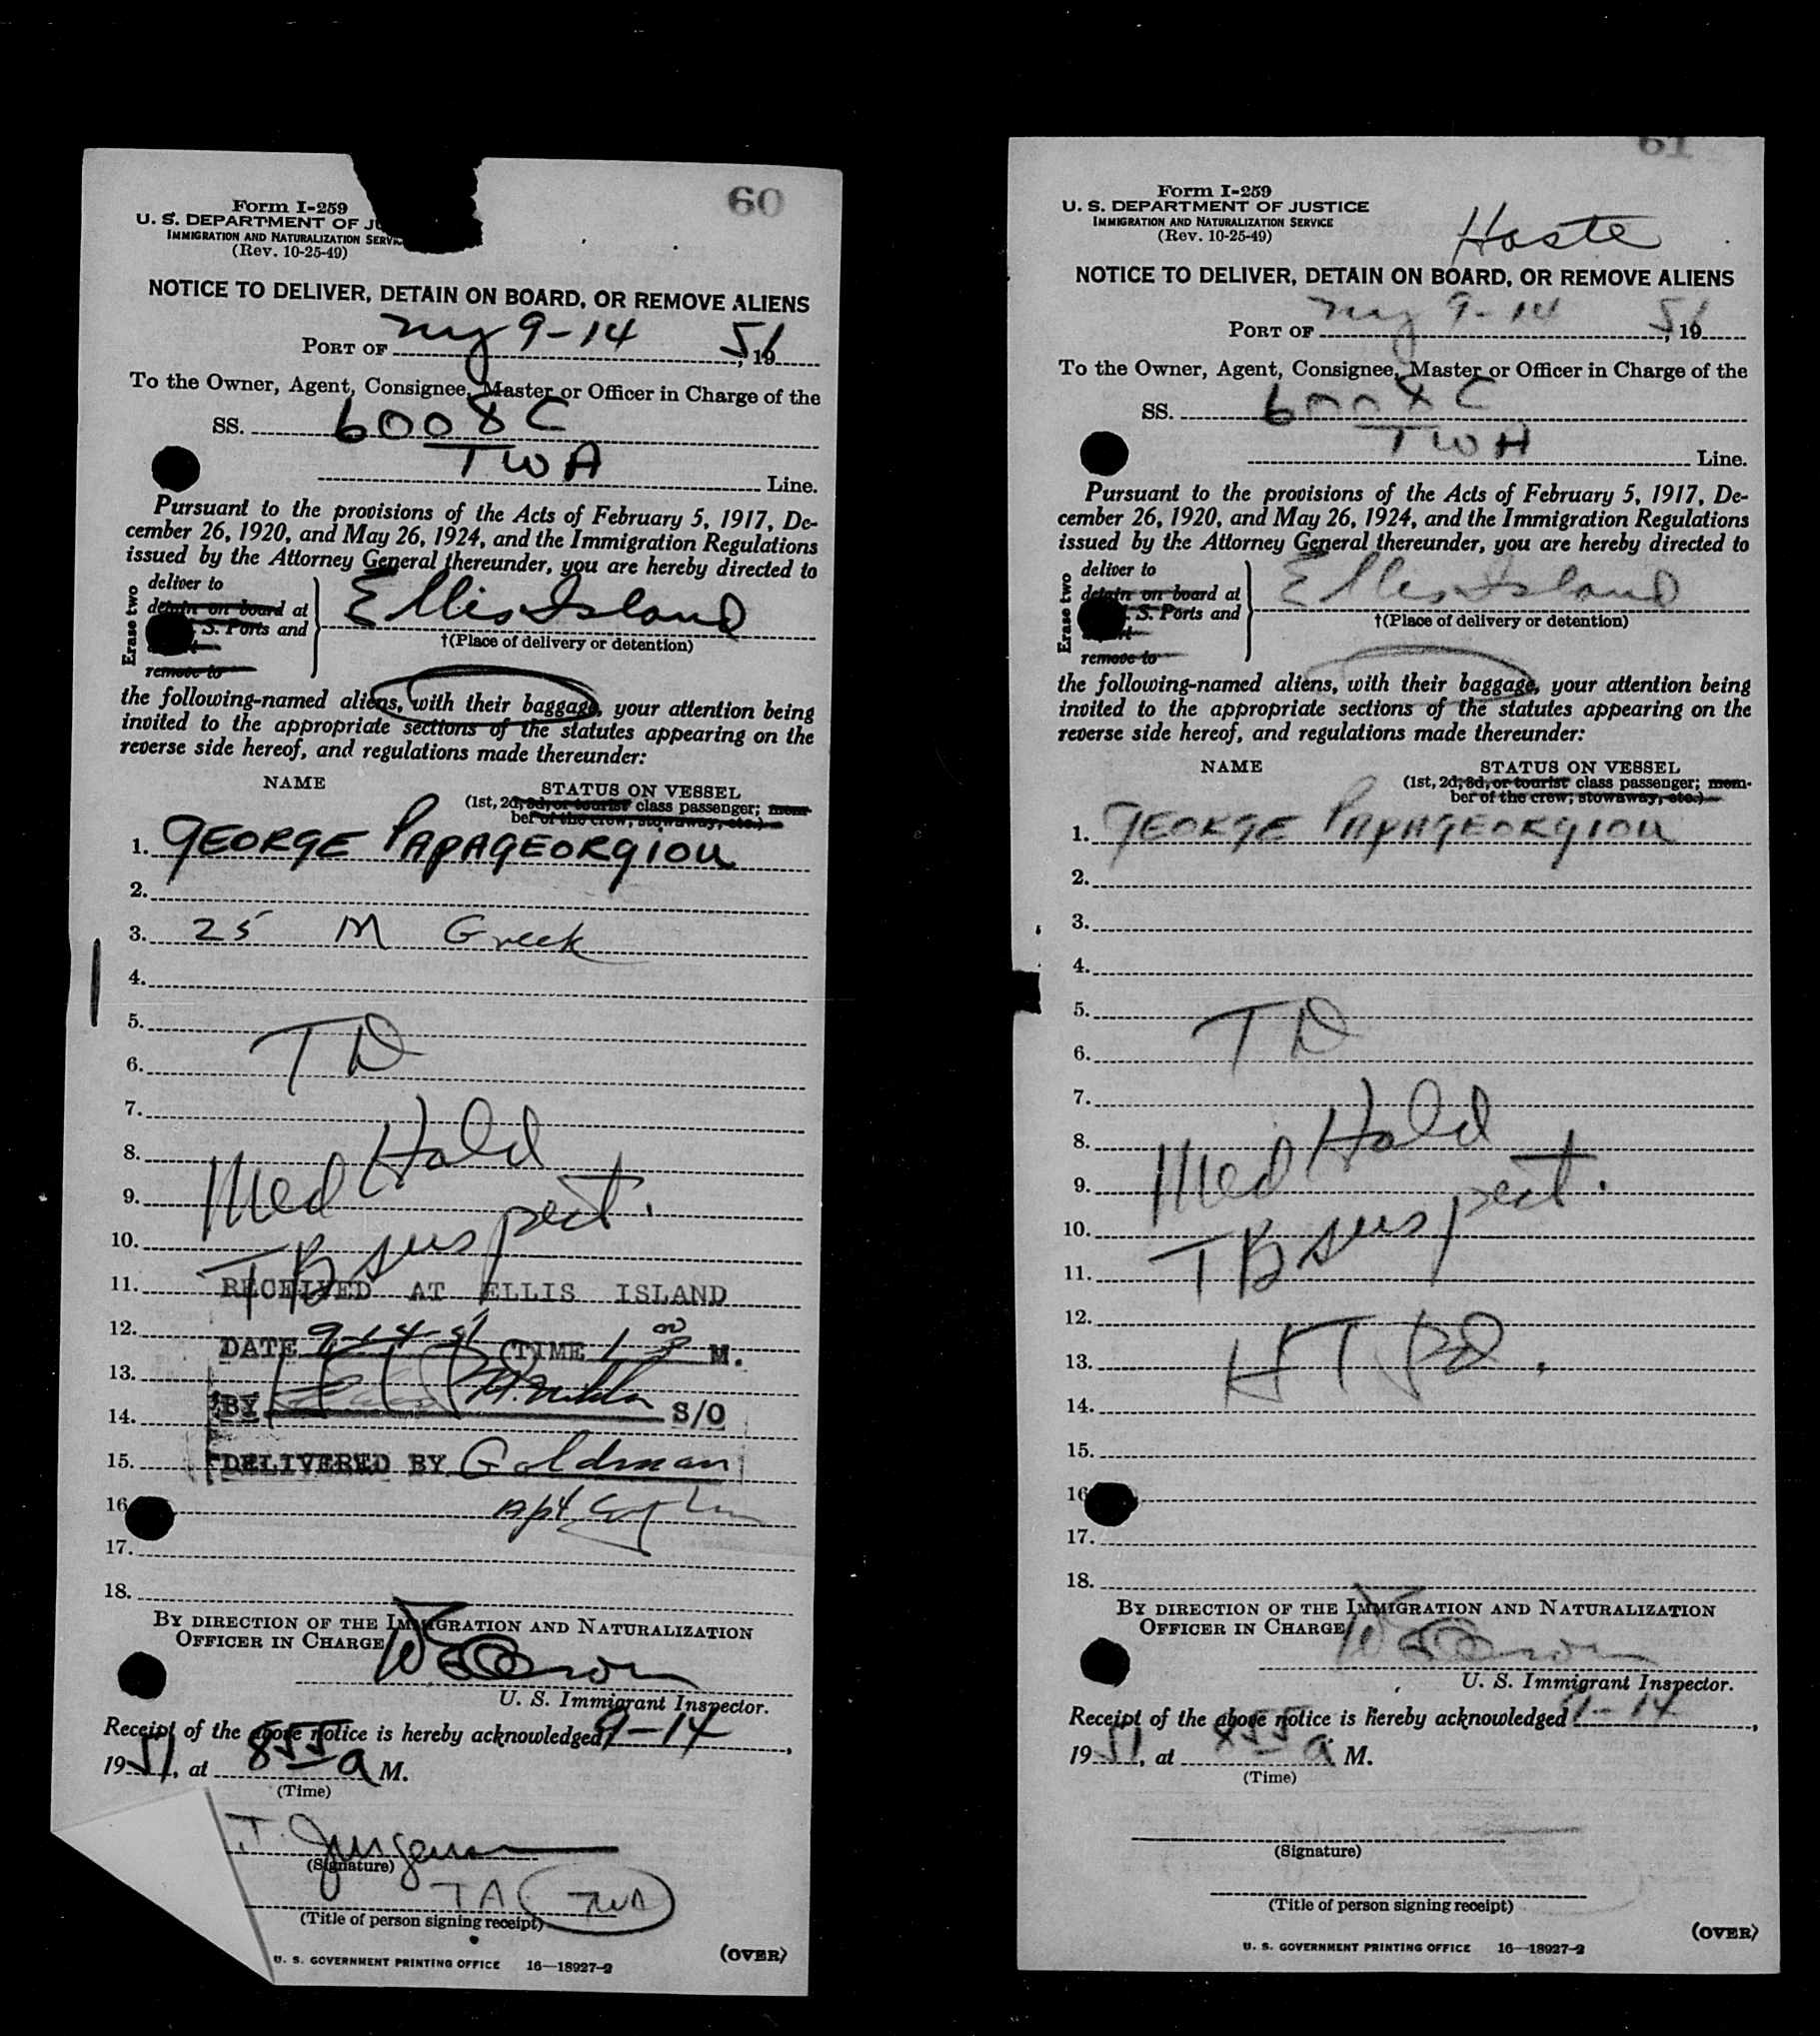 60
Form I-259
U. S. DEPARTMENT OF JU
IMMIGRATION AND NATURALIZATION SERVIC
(Rev. 10-25-49)
NOTICE TO DELIVER, DETAIN ON BOARD, OR REMOVE ALIENS
PORT OF ny 9-14, 1951
To the Owner, Agent, Consignee, Master or Officer in Charge of the
SS. 6008C
TWA Line.
Pursuant to the provisions of the Acts of February 5, 1917, De-
cember 26, 1920, and May 26, 1924, and the Immigration Regulations
issued by the Attorney General thereunder, you are hereby directed to
Erase two
deliver to
detain on board at
S. Ports and
remove to
Ellis Island
†(Place of delivery or detention)
the following-named aliens, with their baggage, your attention being
invited to the appropriate sections of the statutes appearing on the
reverse side hereof, and regulations made thereunder:
NAME
STATUS ON VESSEL
(1st, 2d, 3d, or tourist class passenger; mem-
ber of the crew, stowaway, etc.)
1. GEORGE PAPAGEORGIOU
2.
3. 25 M Greek
4.
5.
TD
6.
7.
Hold
8.
Med
9.
10.
TB suspect.
11. RECEIVED AT ELLIS ISLAND
12.
DATE 9-14-51 TIME 1 M.
13.
BY S/O
14.
15. DELIVERED BY Goldman
16
17.
18.
BY DIRECTION OF THE IMMIGRATION AND NATURALIZATION
OFFICER IN CHARGE
U. S. Immigrant Inspector.
Receipt of the above notice is hereby acknowledged 9-14,
1951, at 855 a M.
(Time)
J. Jurgensen
(Signature)
TA TWA
(Title of person signing receipt)
(OVER)
U. S. GOVERNMENT PRINTING OFFICE 16—18927-2
61
Form I-259
U. S. DEPARTMENT OF JUSTICE
IMMIGRATION AND NATURALIZATION SERVICE
(Rev. 10-25-49)
Haste
NOTICE TO DELIVER, DETAIN ON BOARD, OR REMOVE ALIENS
PORT OF ny 9-14, 1951
To the Owner, Agent, Consignee, Master or Officer in Charge of the
SS. 6008C
TWA Line.
Pursuant to the provisions of the Acts of February 5, 1917, De-
cember 26, 1920, and May 26, 1924, and the Immigration Regulations
issued by the Attorney General thereunder, you are hereby directed to
Erase two
deliver to
detain on board at
S. Ports and
remove to
Ellis Island
†(Place of delivery or detention)
the following-named aliens, with their baggage, your attention being
invited to the appropriate sections of the statutes appearing on the
reverse side hereof, and regulations made thereunder:
NAME
STATUS ON VESSEL
(1st, 2d, 3d, or tourist class passenger; mem-
ber of the crew, stowaway, etc.)
1. GEORGE PAPAGEORGIOU
2.
3.
4.
5.
TD
6.
7.
Hold
8.
Med
9.
10.
TB suspect.
11.
12.
13.
14.
15.
16
17.
18.
BY DIRECTION OF THE IMMIGRATION AND NATURALIZATION
OFFICER IN CHARGE
U. S. Immigrant Inspector.
Receipt of the above notice is hereby acknowledged 9-14,
1951, at 855 a M.
(Time)
(Signature)
(Title of person signing receipt)
(OVER)
U. S. GOVERNMENT PRINTING OFFICE 16—18927-2